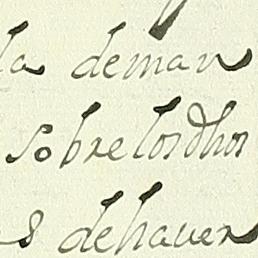 la deman
sobre los dhos
s de haver